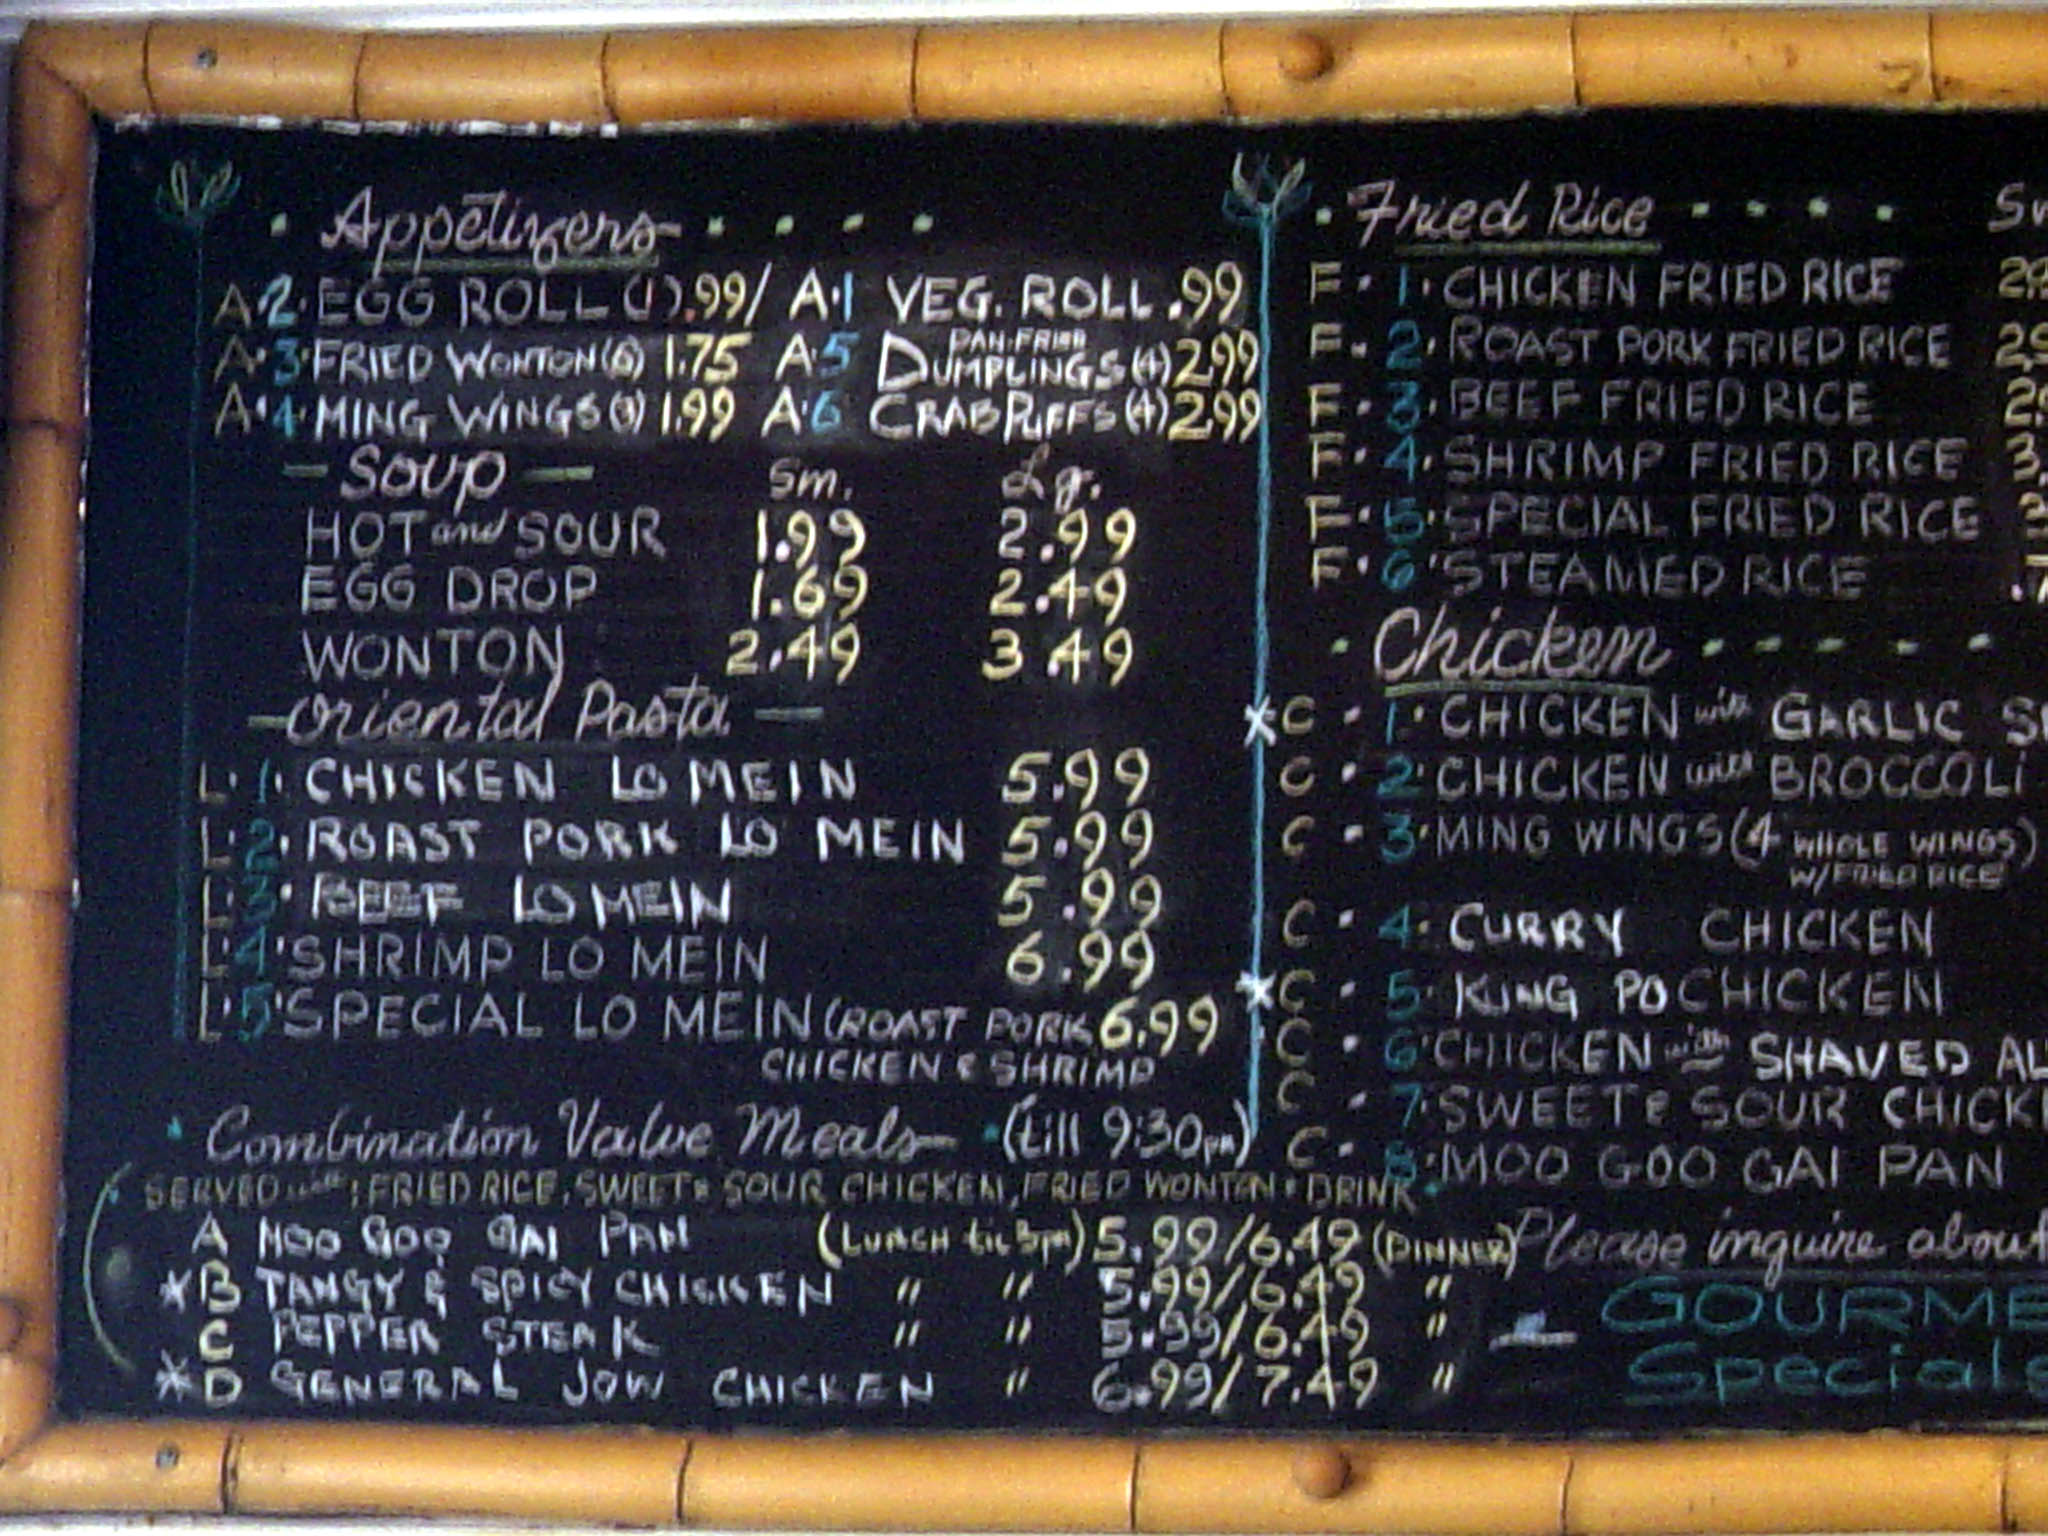 Appetizers
A·2·EGG ROLL (1) .99/ A·1 VEG. ROLL .99
A·3·FRIED WONTON (6) 1.75 A·5 PAN-FRIED DUMPLINGS (4) 2.99
A·4·MING WINGS (3) 1.99 A·6 CRAB PUFFS (4) 2.99
— Soup — Sm. Lg.
HOT and SOUR 1.99 2.99
EGG DROP 1.69 2.49
WONTON 2.49 3.49
— Oriental Pasta —
L·1· CHICKEN LO MEIN 5.99
L·2· ROAST PORK LO MEIN 5.99
L·3· BEEF LO MEIN 5.99
L·4·SHRIMP LO MEIN 6.99
L·5·SPECIAL LO MEIN (ROAST PORK 6.99
CHICKEN & SHRIMP
Combination Value Meals (till 9:30pm)
SERVED with: FRIED RICE, SWEET & SOUR CHICKEN, FRIED WONTON & DRINK
A MOO GOO GAI PAN (LUNCH til 3pm) 5.99/6.49 (DINNER)
* B TANGY & SPICY CHICKEN " " 5.99/6.49 "
C PEPPER STEAK " " 5.99/6.49 "
* D GENERAL JOW CHICKEN " 6.99/7.49 "
Fried Rice
F·1·CHICKEN FRIED RICE
F·2·ROAST PORK FRIED RICE
F·3·BEEF FRIED RICE
F·4·SHRIMP FRIED RICE
F·5·SPECIAL FRIED RICE
F·6·STEAMED RICE
Chicken
* C·1·CHICKEN with GARLIC
C·2·CHICKEN with BROCCOLI
C·3·MING WINGS (4 WHOLE WINGS)
W/FRIED RICE
C·4·CURRY CHICKEN
* C·5·KUNG PO CHICKEN
C·6·CHICKEN with SHAVED
C·7·SWEET & SOUR CHICK
C·8·MOO GOO GAI PAN
Please inquire about
GOURME
Specials